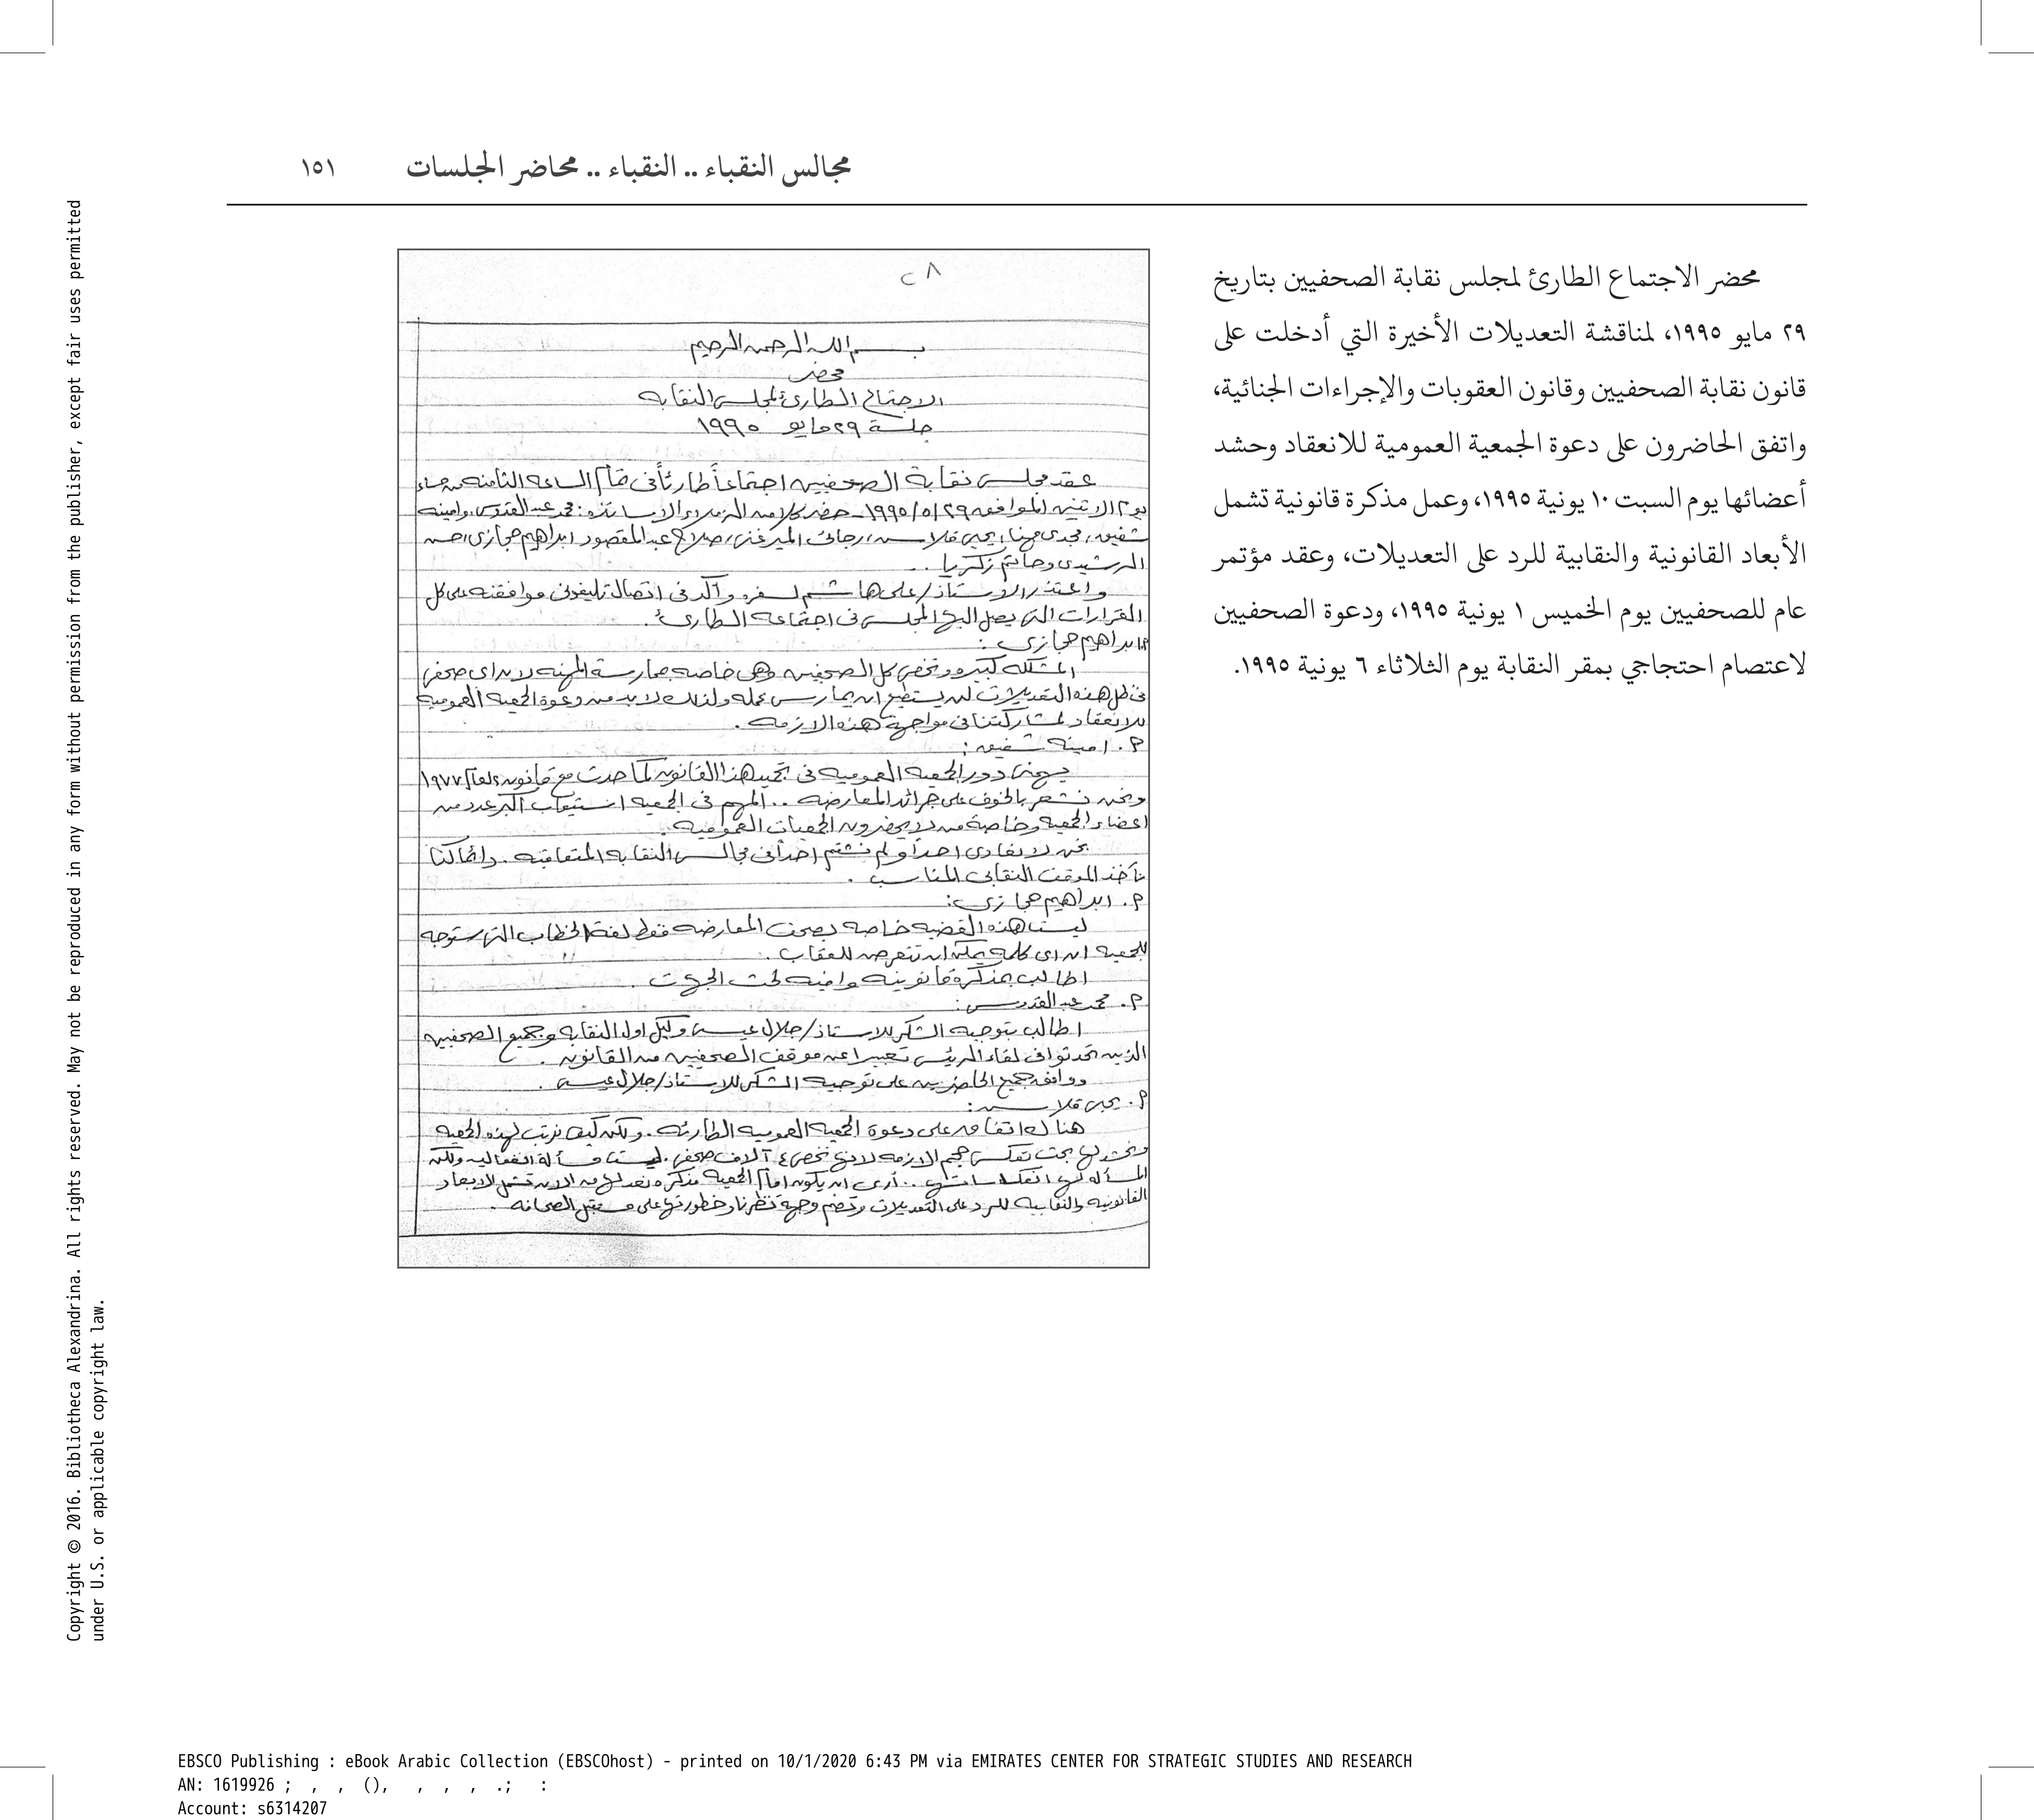 مجالس النقباء .. النقباء .. محاضر الجلسات ١٥١
محضر الاجتماع الطارئ لمجلس نقابة الصحفيين بتاريخ
٢٩ مايو ١٩٩٥، لمناقشة التعديلات الأخيرة التي أدخلت على
قانون نقابة الصحفيين وقانون العقوبات والإجراءات الجنائية،
واتفق الحاضرون على دعوة الجمعية العمومية للانعقاد وحشد
أعضائها يوم السبت ١٠ يونية ١٩٩٥، وعمل مذكرة قانونية تشمل
الأبعاد القانونية والنقابية للرد على التعديلات، وعقد مؤتمر
عام للصحفيين يوم الخميس ١ يونية ١٩٩٥، ودعوة الصحفيين
لاعتصام احتجاجي بمقر النقابة يوم الثلاثاء ٦ يونية ١٩٩٥.
٢٨
بسم الله الرحمن الرحيم
محضر
الاجتماع الطارئ لمجلس النقابه
جلسة ٢٩ مايو ١٩٩٥
عقد مجلس نقابة الصحفيين اجتماعاً طارئاً فى تمام الساعه الثامنه من مساء
يوم الاثنين الموافق ٢٩/٥/١٩٩٥ - حضره كلا من الزملاء والاساتذه: محمد عبد القدوس، وامينه
شفيق، مجدى مهنا، يحيى قلاش، رجائى الميرغنى، صلاح عبد المقصود ابراهيم حجازى، حسن
الرشيدى وحاتم زكريا ..
واعتذر الاستاذ/ على هاشم لسفره وأكد فى اتصال تليفونى موافقته على كل
القرارات التى يصل اليها المجلس فى اجتماعه الطارئ.
ابراهيم حجازى:
المشكله كبيره وتخص كل الصحفيين وهى خاصه بممارسة المهنه لان اى صحفى
فى ظل هذه التعديلات لن يستطيع ان يمارس عمله ولذلك لابد من دعوة الجمعيه العموميه
للانعقاد لمشاركتنا فى مواجهة هذه الازمه.
أ. امينه شفيق:
يهمنى دور الجمعيه العموميه فى تجميد هذا القانون كما حدث مع قانون لعام ١٩٧٧
ونحن نشعر بالخوف على جرائد المعارضه .. المهم فى الجمعيه استيعاب اكبر عدد من
اعضاء الجمعيه وخاصة من لا يحضرون الجمعيات العموميه.
نحن لا نعادى احداً ولم نشتم احداً فى مجالس النقابه المتعاقبه. وانما كنا
نأخذ الموقف النقابى المناسب.
أ. ابراهيم حجازى:
ليست هذه القضيه خاصه بصحف المعارضه فقط لغة الخطاب التى ستوجه
للجمعيه ان اى كلمه يمكن ان تتعرض للعقاب.
اطالب بمذكرة قانونيه وافيه تحت
أ. محمد عبد القدوس:
اطالب بتوجيه الشكر للاستاذ/ جلال عيسى وكيل اول النقابه وجميع الصحفيين
الذين تحدثوا فى لقاء الرئيس تعبيرا عن موقف الصحفيين من القانون.
ووافق جميع الحاضرين على توجيه الشكر للاستاذ/ جلال عيسى.
أ. يحيى قلاش:
هناك اتفاق على دعوة الجمعيه العموميه الطارئه. ولكن كيف نرتب لهذه الجمعيه
ونحشد لها بحيث تعكس حجم الازمه لانها تخص ٤ آلاف صحفى. ليست مسألة انفعاليه ولكن
المسأله لها انعكاساتها .. أرى ان يكون امام الجمعيه مذكره نعد لها من الان تشمل الابعاد
القانونيه والنقابيه للرد على التعديلات وتضم وجهة نظرنا وخطورتها على مستقبل الصحافه.
Copyright © 2016. Bibliotheca Alexandrina. All rights reserved. May not be reproduced in any form without permission from the publisher, except fair uses permitted
under U.S. or applicable copyright law.
EBSCO Publishing : eBook Arabic Collection (EBSCOhost) - printed on 10/1/2020 6:43 PM via EMIRATES CENTER FOR STRATEGIC STUDIES AND RESEARCH
AN: 1619926 ; , , (), , , , .; :
Account: s6314207